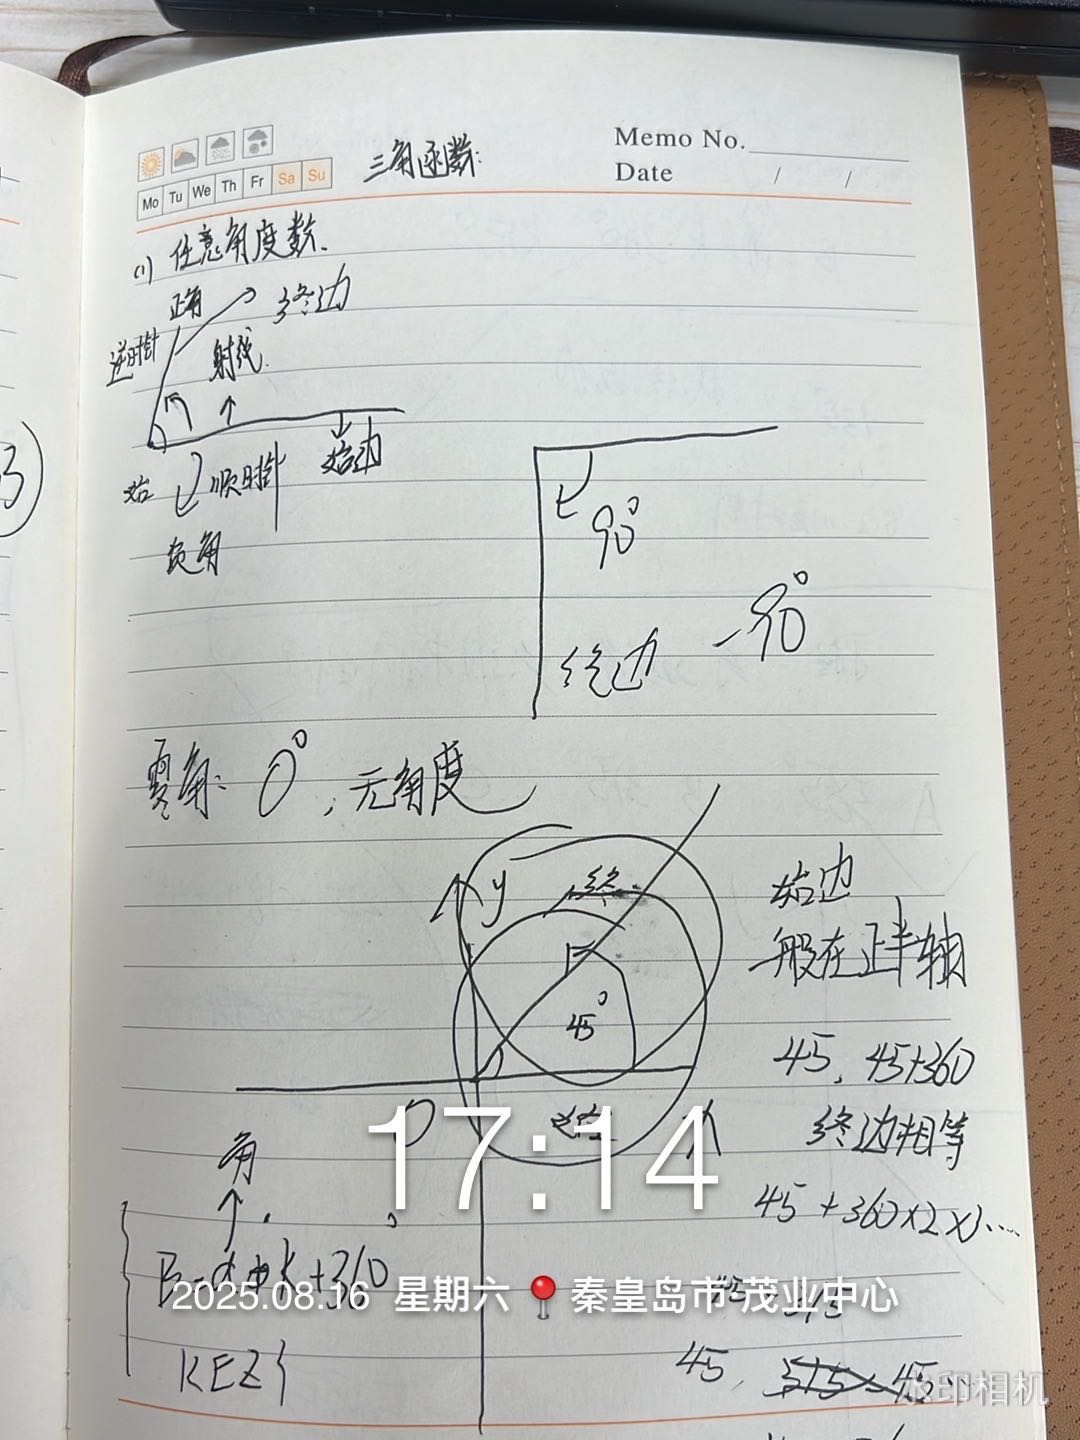 Memo No.
Date / /
Mo Tu We Th Fr Sa Su
三角函数:
(1) 任意角度数.
正角
终边
逆时针
射线.
始边
始
顺时针
负角
90°
-90°
终边
零角: 0°, 无角度
y
终
始边
一般在正半轴
45°
45, 45+360
O
x
终边相等
17:14
角
45+360×2×3....
K+360
2025.08.16 星期六 秦皇岛市·茂业中心
45
315
KEZ}
45, 315 -45
水印相机